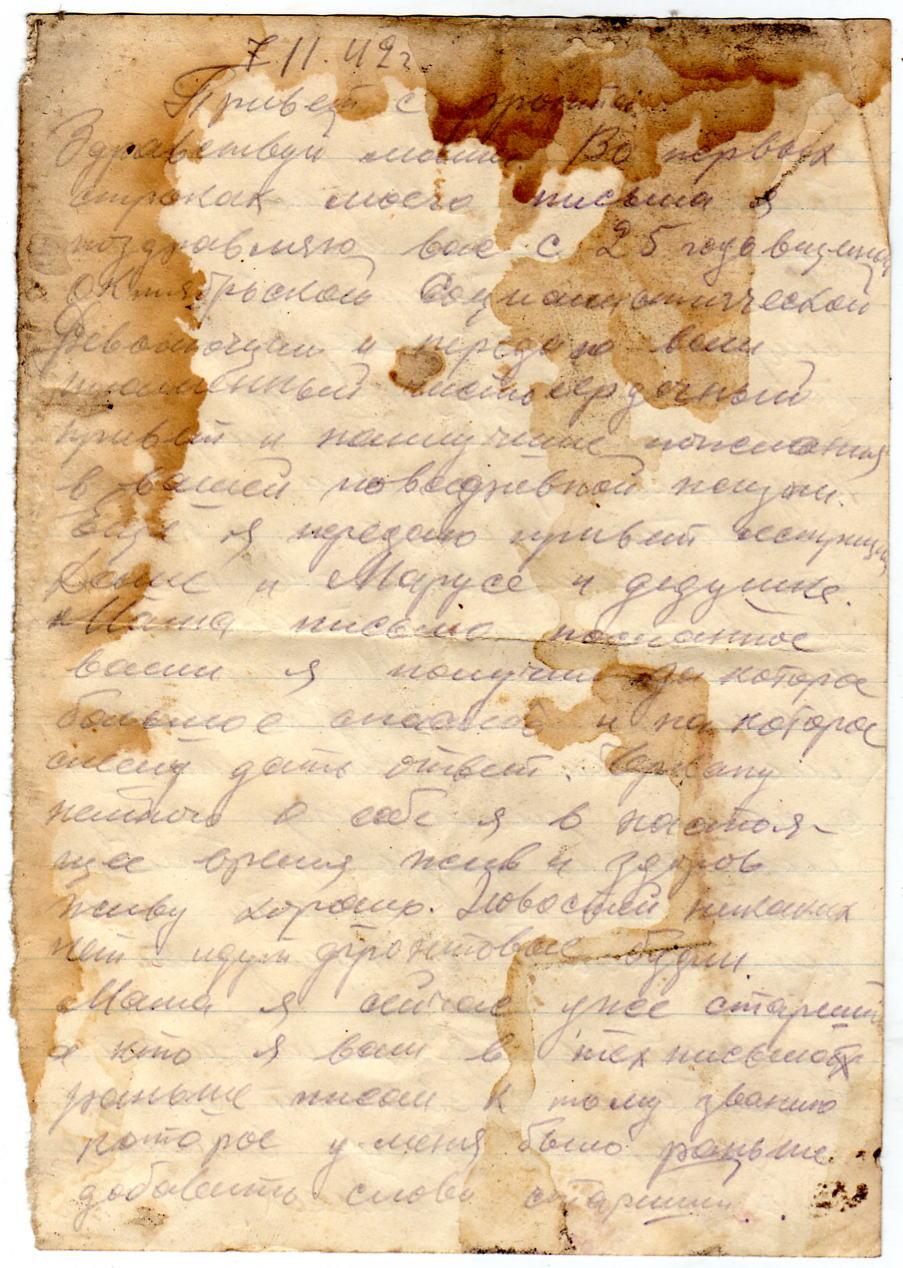 7/11.42г.
Привет с фронта
Здравствуй мама. Во первых
строках моего письма я
поздравляю вас с 25 годовщиной
Октябрьской Социалистической
Революции и передаю вам
пламенный чистосердечный
привет и наилучшие пожелания
в вашей повседневной жизни.
Ещё я передаю привет сестрицам
и Марусе и дедушке.
Мама письмо посланное
вами я получил за которое
большое спасибо и на которое
спешу дать ответ.
немного о себе я в настоя-
щее время жив и здоров
живу хорошо. Новостей никаких
нет идут фронтовые будни
Мама я сейчас уже старший
а кто я вам в тех письмах
раньше писал к тому званию
которое у меня было раньше
добавить слово старший.